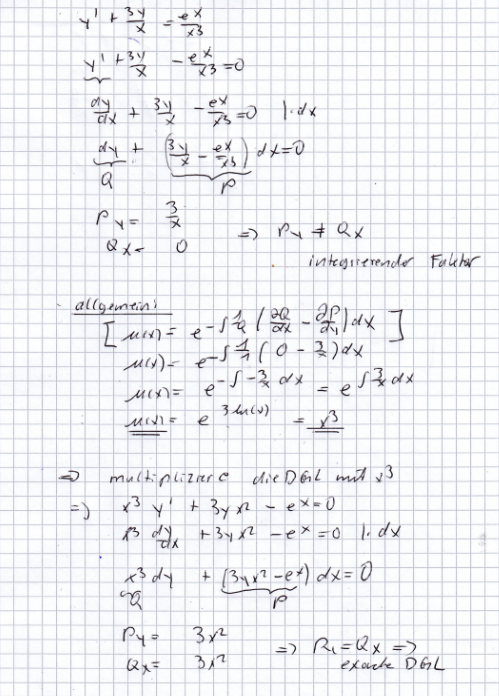 y' + 3y/x = e^x/x^3
y' + 3y/x - e^x/x^3 = 0
dy/dx + 3y/x - e^x/x^3 = 0 |·dx
dy + (3y/x - e^x/x^3) dx = 0
Q P
P_y = 3/x
Q_x = 0 => P_y ≠ Q_x
integrierender Faktor
allgemein:
[ μ(x) = e^-∫ 1/Q (∂Q/∂x - ∂P/∂y) dx ]
μ(x) = e^-∫ 1/1 (0 - 3/x) dx
μ(x) = e^-∫ -3/x dx = e^∫ 3/x dx
μ(x) = e^3 ln(x) = x^3
=> multipliziere die DGL mit x^3
=> x^3 y' + 3yx^2 - e^x = 0
x^3 dy/dx + 3yx^2 - e^x = 0 |·dx
x^3 dy + (3yx^2 - e^x) dx = 0
Q P
P_y = 3x^2
Q_x = 3x^2 => P_y = Q_x =>
exakte DGL